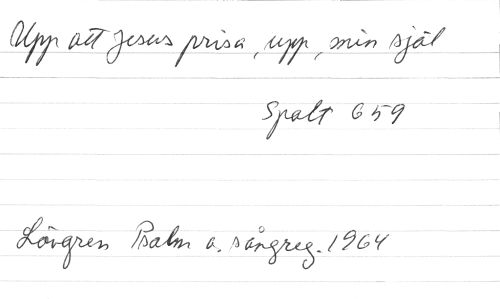 Upp att Jesus prisa, upp, min själ
Spalt 659
Lövgren Psalm o. sångreg. 1964